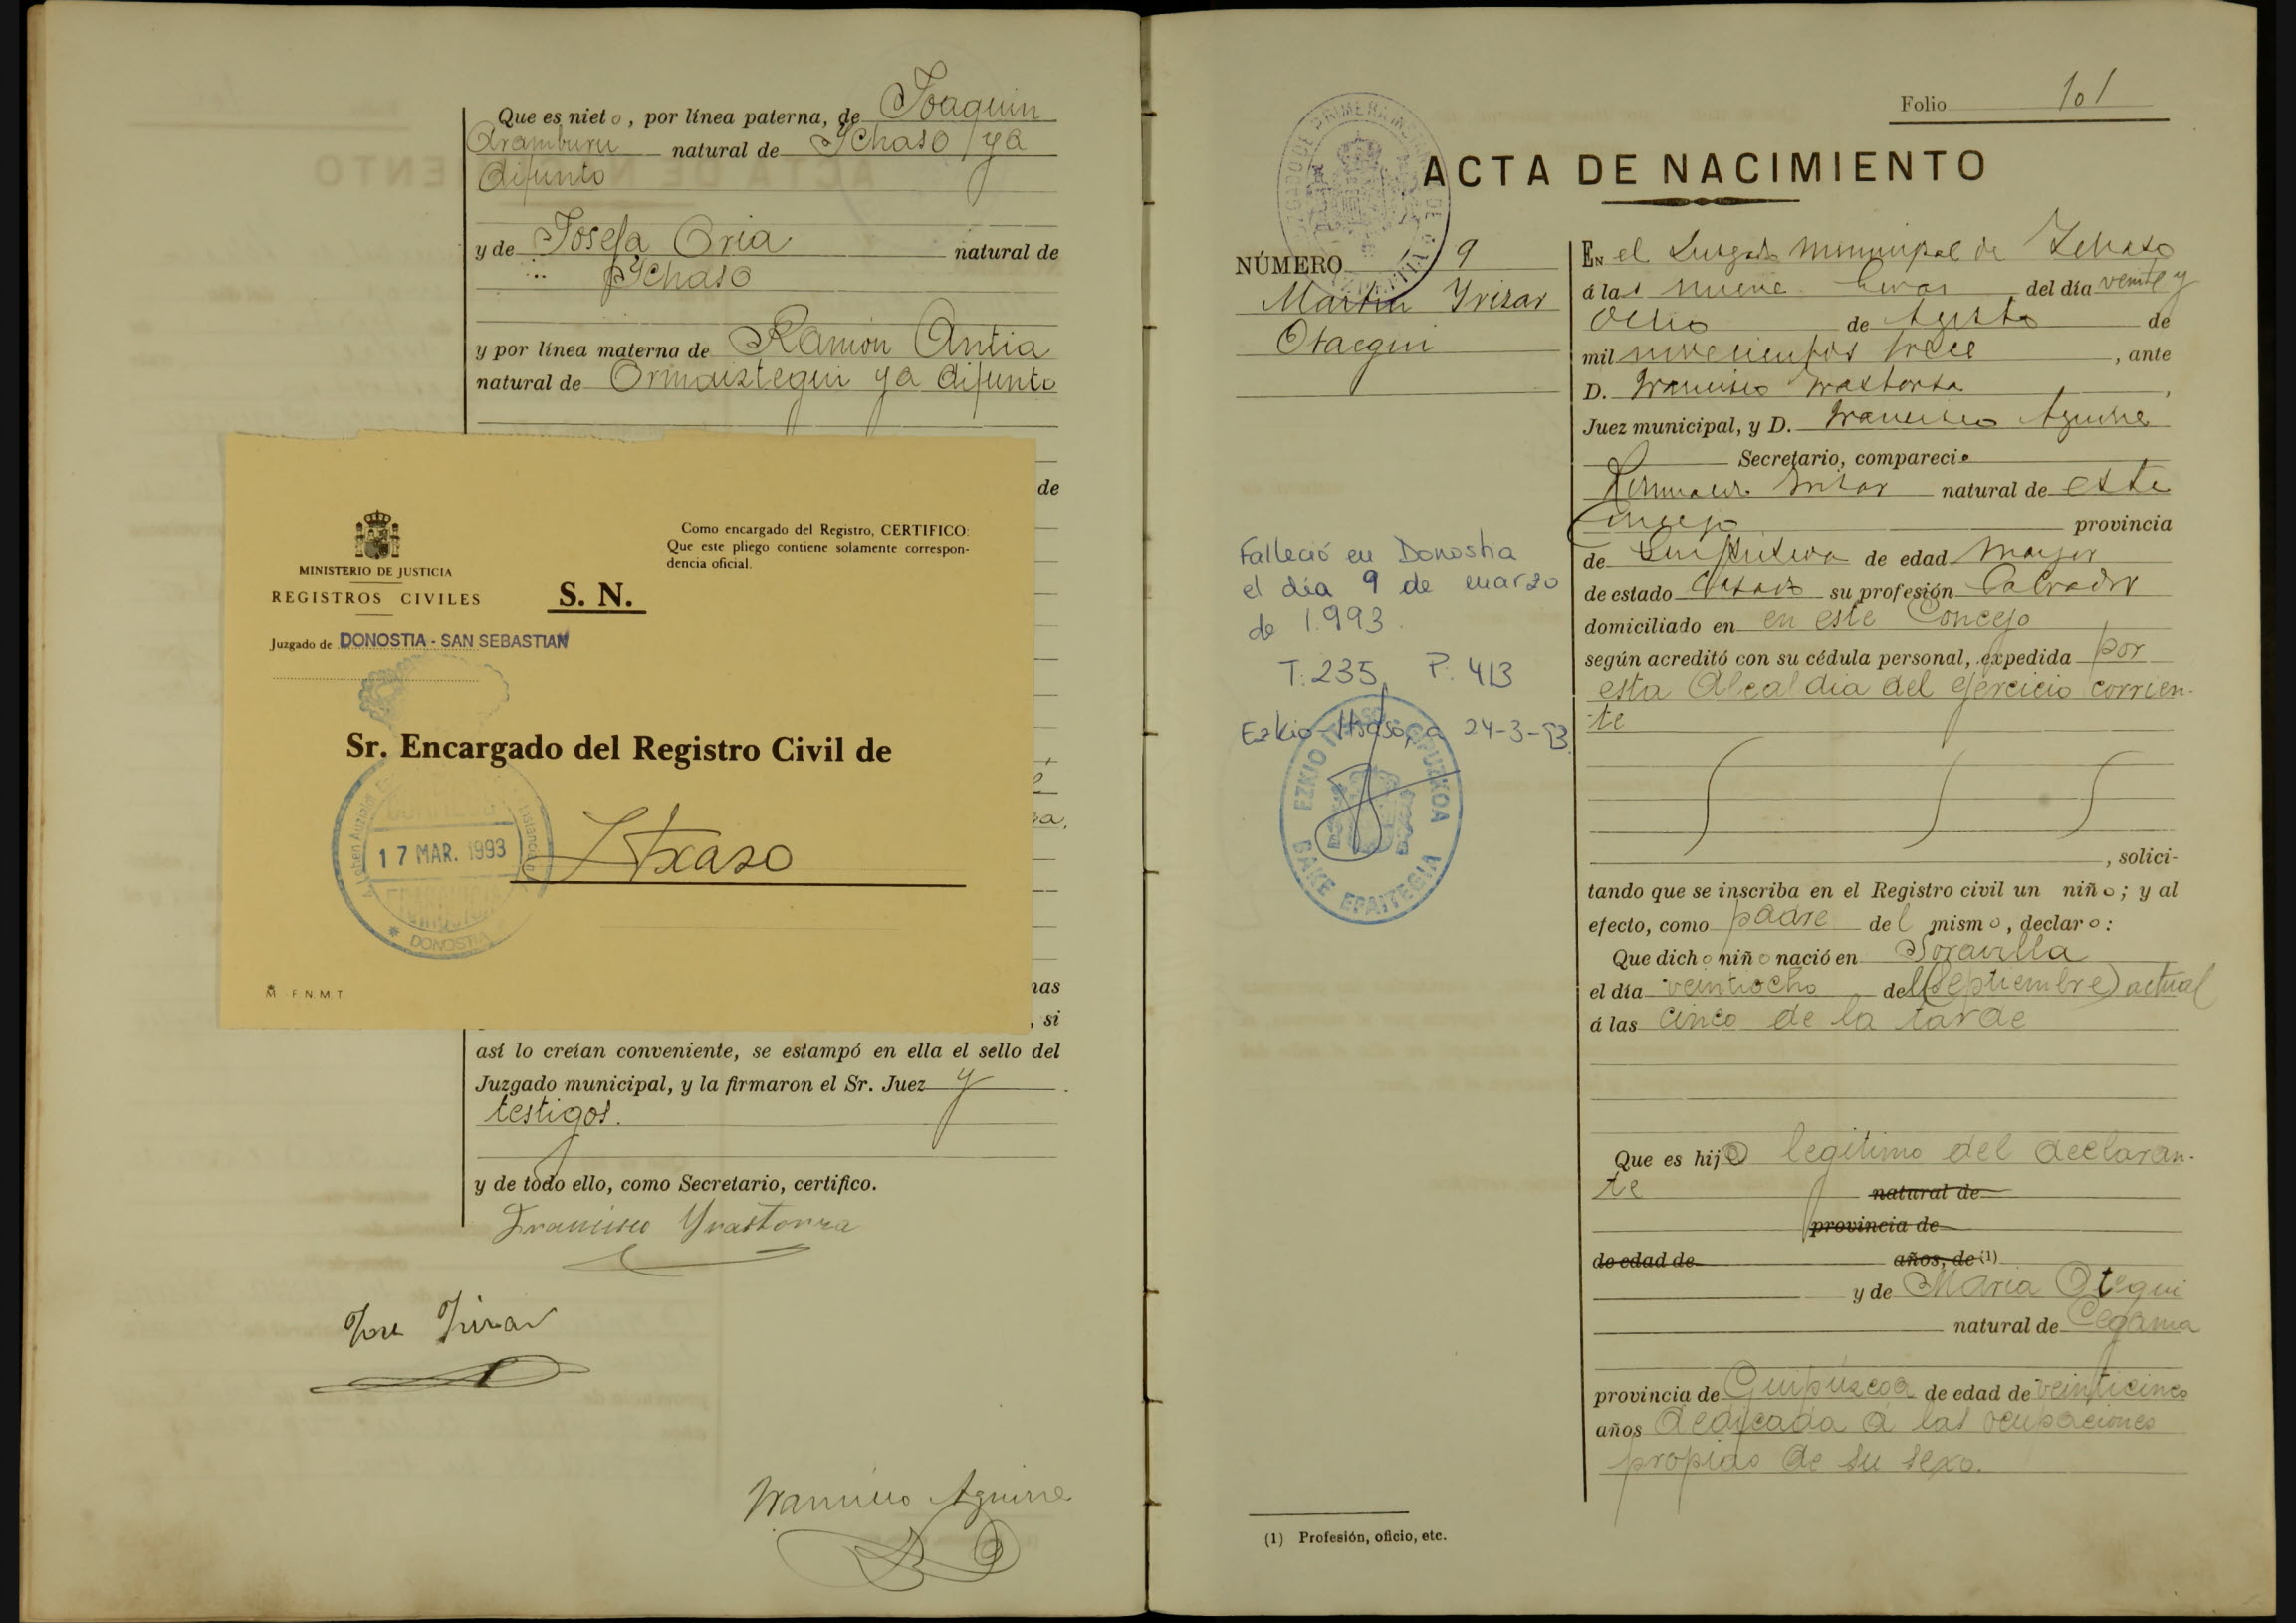 Que es nieto, por línea paterna, de Joaquin
Aramburu natural de Ychaso ya
difunto
y de Josefa Oria natural de
Ychaso
y por línea materna de Ramón Antia
natural de Ormaiztegui ya difunto
de
MINISTERIO DE JUSTICIA
REGISTROS CIVILES
S. N.
Como encargado del Registro, CERTIFICO:
Que este pliego contiene solamente correspon-
dencia oficial.
Juzgado de DONOSTIA - SAN SEBASTIAN
Sr. Encargado del Registro Civil de
17 MAR. 1993
DONOSTIA
Itxaso
F.N.M.T
nas
, si
así lo creían conveniente, se estampó en ella el sello del
Juzgado municipal, y la firmaron el Sr. Juez y
testigos.
y de todo ello, como Secretario, certifico.
Francisco Yrastorza
Jose Irizar
Francisco Aguirre
Folio 101
JUZGADO DE PRIMERA INSTANCIA DE
ACTA DE NACIMIENTO
NÚMERO 9
Martin Yrizar
Otaegui
Falleció en Donostia
el día 9 de marzo
de 1.993.
T: 235 P. 413
Ezkio-Itsaso, a 24-3-93
EZKIO ITSASO GIPUZKOA
BAKE EPAITEGIA
EN el Jusgado Municipal de Ichaso
á las nueve horas del día veinte y
ocho de Agosto de
mil novecientos trece, ante
D. Francisco Yrastorza,
Juez municipal, y D. Francisco Aguirre
Secretario, compareció
Irizar natural de este
Concejo provincia
de Guipúzcoa de edad mayor
de estado casado su profesión Labrador
domiciliado en en este Concejo
según acreditó con su cédula personal, expedida por
esta Alcaldia del ejercicio corrien-
te
, solici-
tando que se inscriba en el Registro civil un niño; y al
efecto, como padre del mismo, declaro:
Que dicho niño nació en Soravilla
el día veintiocho del (septiembre) actual
á las cinco de la tarde
Que es hijo legitimo del declaran-
te natural de
provincia de
de edad de años, de (1)
y de Maria Otegui
natural de Cegama
provincia de Guipúzcoa de edad de veinticinco
años dedicada á las ocupaciones
propias de su sexo.
(1) Profesión, oficio, etc.